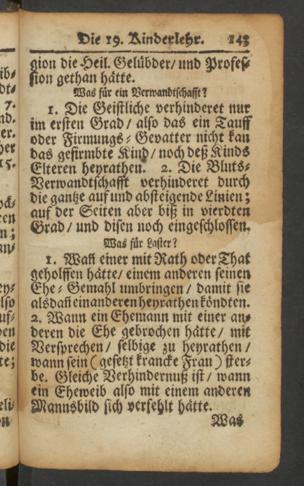 Die 19. Kinderlehr. 143
gion die Heil. Gelübder/ und Profes-
sion gethan hätte.
Was für ein Verwandtschafft?
1. Die Geistliche verhinderet nur
im ersten Grad/ also das ein Tauff
oder Firmungs-Gevatter nicht kan
das gefirmbte Kind/ noch deß Kinds
Elteren heyrathen. 2. Die Bluts-
Verwandtschafft verhinderet durch
die gantze auf und absteigende Linien;
auf der Seiten aber biß in vierdten
Grad/ und disen noch eingeschlossen.
Was für Laster?
1. Wañ einer mit Rath oder That
geholffen hätte/ einem anderen seinen
Ehe-Gemahl umbringen/ damit sie
alsdañ einanderen heyrathen köndten.
2. Wann ein Ehemann mit einer an-
deren die Ehe gebrochen hätte/ mit
Versprechen/ selbige zu heyrathen/
wann sein (gesetzt krancke Frau) ster-
be. Gleiche Verhindernuß ist/ wann
ein Eheweib also mit einem anderen
Mannsbild sich verfehlt hätte.
Was